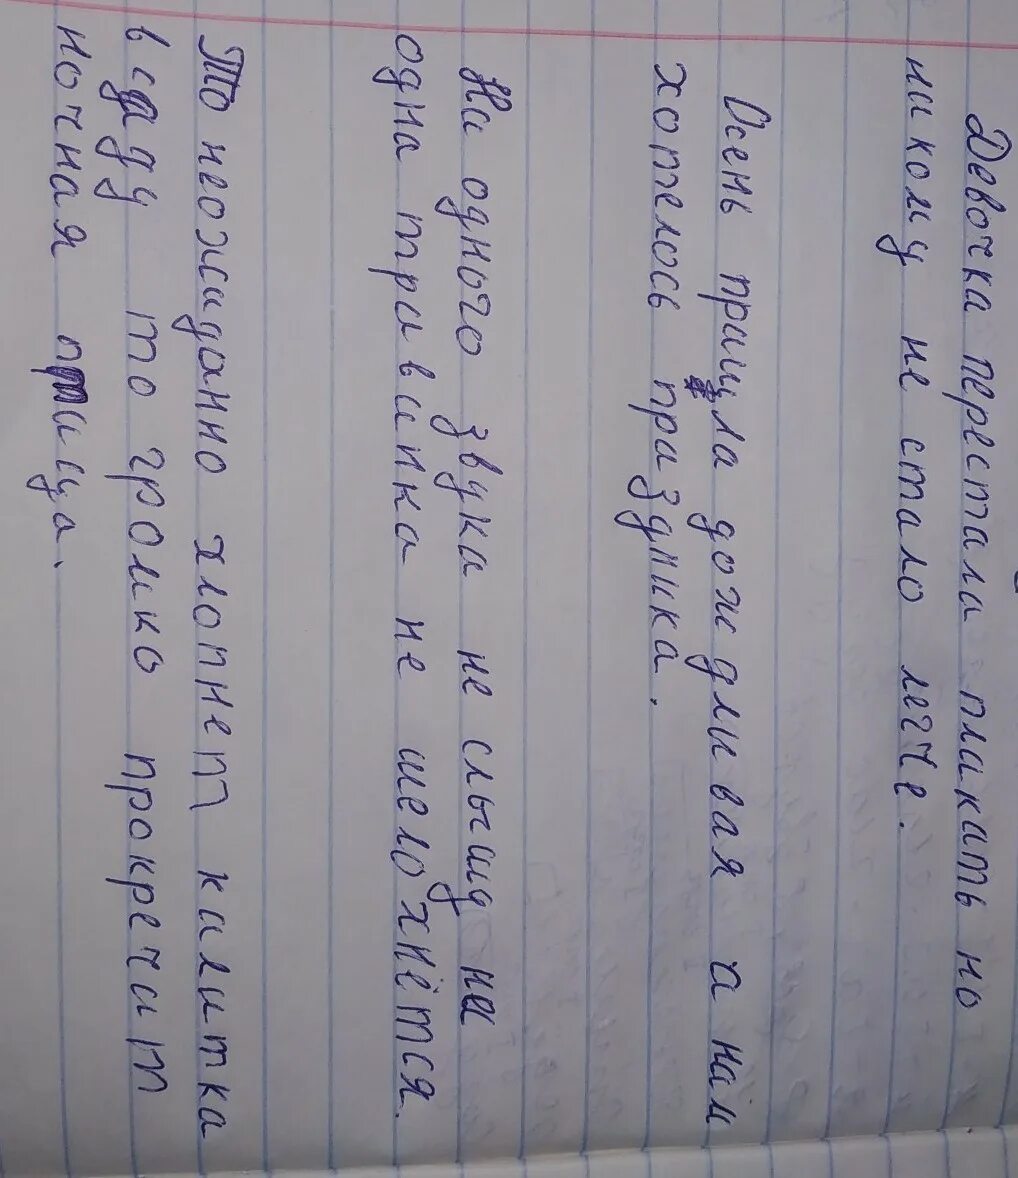 Девочка перестала плакать но
никому не стало легче.
Осень пришла дождливая а нам
хотелось праздника.
На одного звука не слышд на
одна травинка не шелохнётся.
То неожиданно хлопнет калитка
в саду то громко прокречит
ночная птаца.